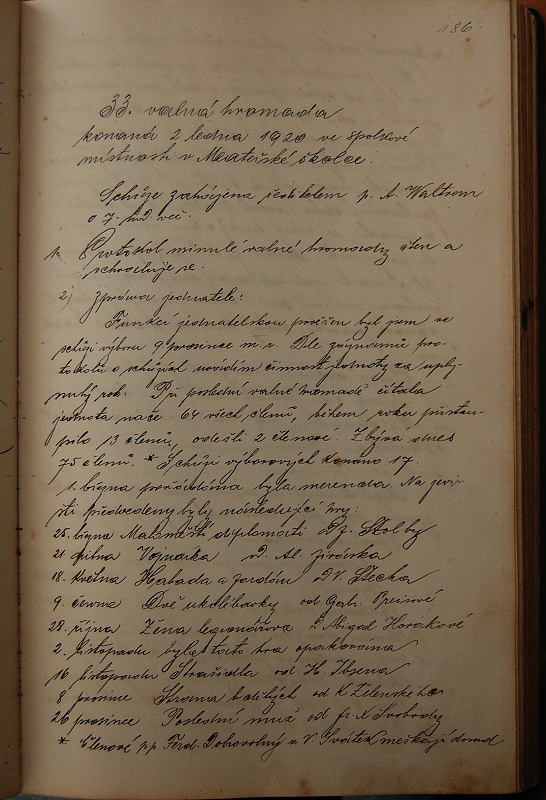 186.
33. valná hromada
konaná 2 ledna 1920 ve spolkové
místnosti v Mateřské školce.
Schůze zahájena ředitelem p. A. Waltrem
o 7. hod. več.
1. Protokol minulé valné hromady čten a
schvaluje se.
2) Zpráva jednatele:
Funkcí jednatelskou pověřen byl jsem ve
schůzi výboru 9 prosince m. r. Dle záznamů pro-
tokolů o schůzích uvádím činnost jednoty za uply-
nulý rok. Při poslední valné hromadě čítala
jednota naše 64 všech členů, během roku přistou-
pilo 13 členů, odešli 2 členové. Zbývá dnes
75 členů. * Schůzí výborových konáno 17.
1. března pořádána byla merenda. Na jevi-
šti předvedeny byly následující hry:
25. března Maloměští diplomati Dr. J. Štolby
21. dubna Vojnarka od. Al. Jiráska
18. května Habada a Jordán od V. Štecha
9. června Dvě ukolébavky od Gab. Preisové
28. října Žena legionářova z. Abigail Horákové
2. listopadu byla tato hra opakována
16 listopadu Strašidla od H. Ibsena
8 prosince Strana bílých od K. Želenského
26 prosince Poslední muž od fr. X Svobody
* Členové p.p. Ferd. Dobrovolný a V. Svátek meškají dosud